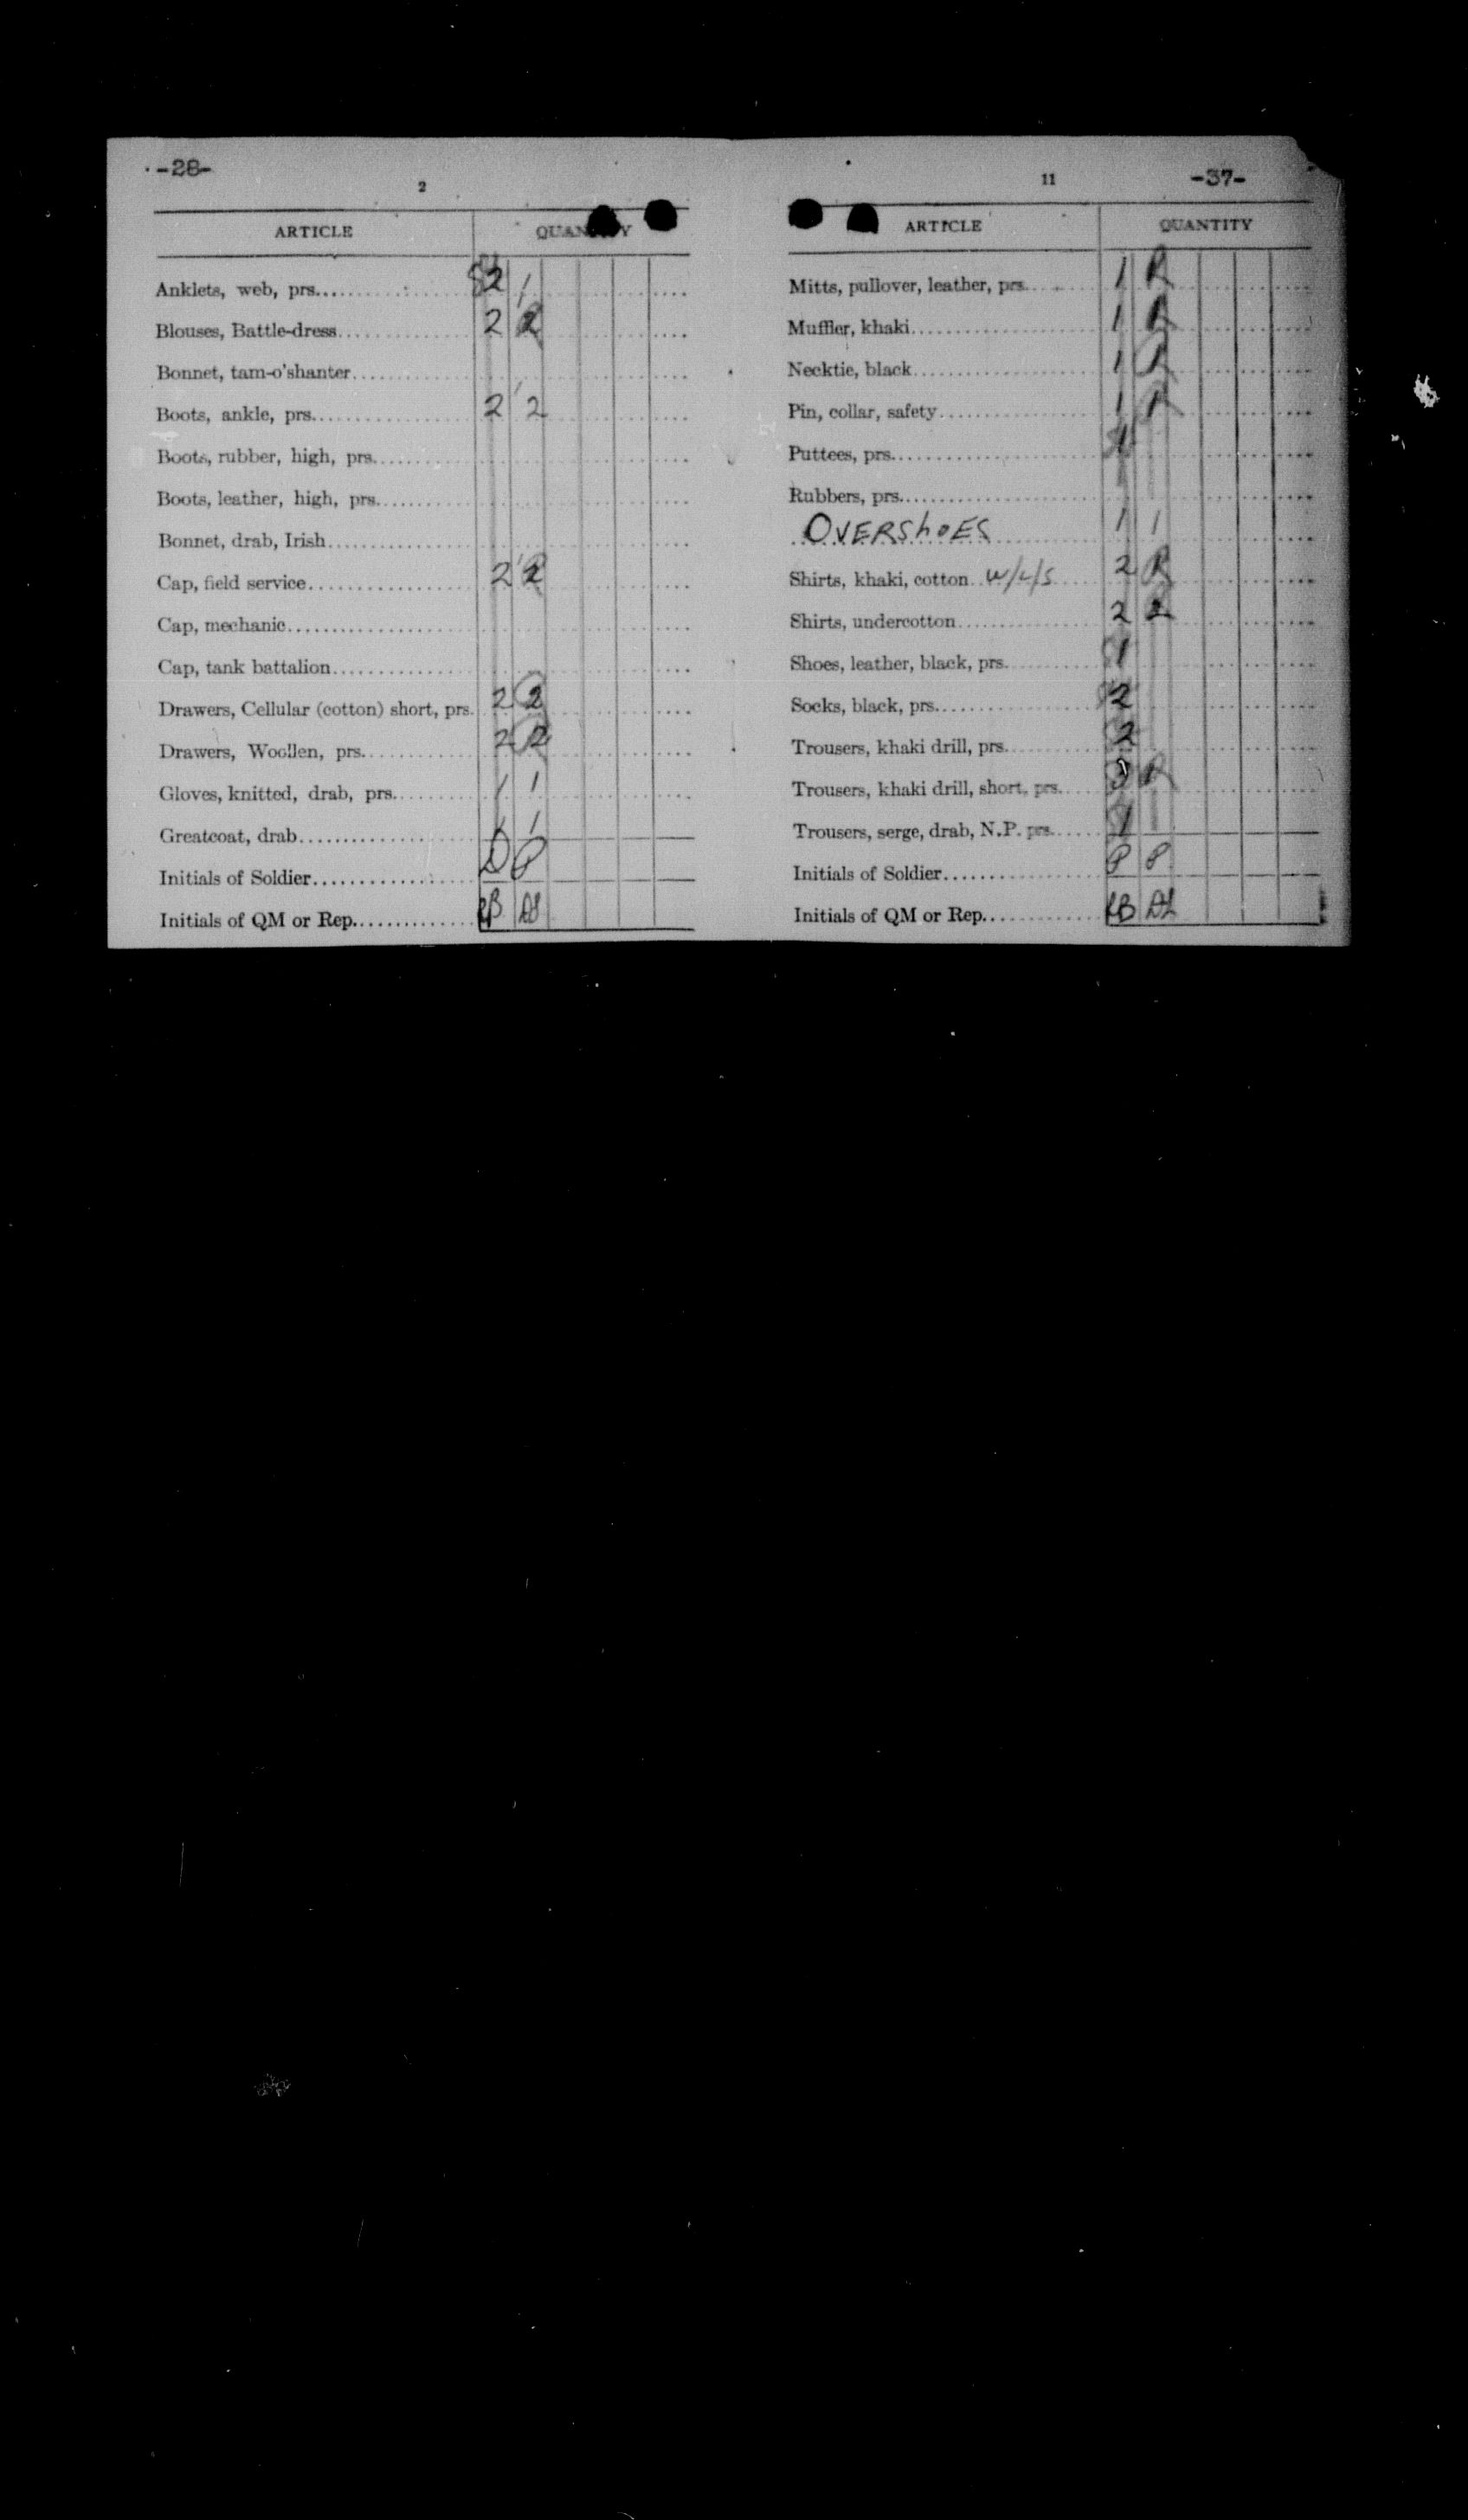 -28-
2
ARTICLE QUANTITY
Anklets, web, prs. 2 1
Blouses, Battle-dress 2 2
Bonnet, tam-o'shanter
Boots, ankle, prs. 2 2
Boots, rubber, high, prs.
Boots, leather, high, prs.
Bonnet, drab, Irish
Cap, field service 2 2
Cap, mechanic
Cap, tank battalion
Drawers, Cellular (cotton) short, prs. 2 2
Drawers, Woollen, prs. 2 2
Gloves, knitted, drab, prs. 1 1
Greatcoat, drab 1 1
Initials of Soldier
Initials of QM or Rep.
11
-37-
ARTICLE QUANTITY
Mitts, pullover, leather, prs. 1 R
Muffler, khaki 1 R
Necktie, black 1 R
Pin, collar, safety 1 R
Puttees, prs.
Rubbers, prs.
OVERShOES 1 1
Shirts, khaki, cotton W/L/S 2 R
Shirts, undercotton 2 2
Shoes, leather, black, prs. 1
Socks, black, prs. 2
Trousers, khaki drill, prs. 2
Trousers, khaki drill, short, prs. R
Trousers, serge, drab, N.P. prs. 1
Initials of Soldier P P
Initials of QM or Rep.